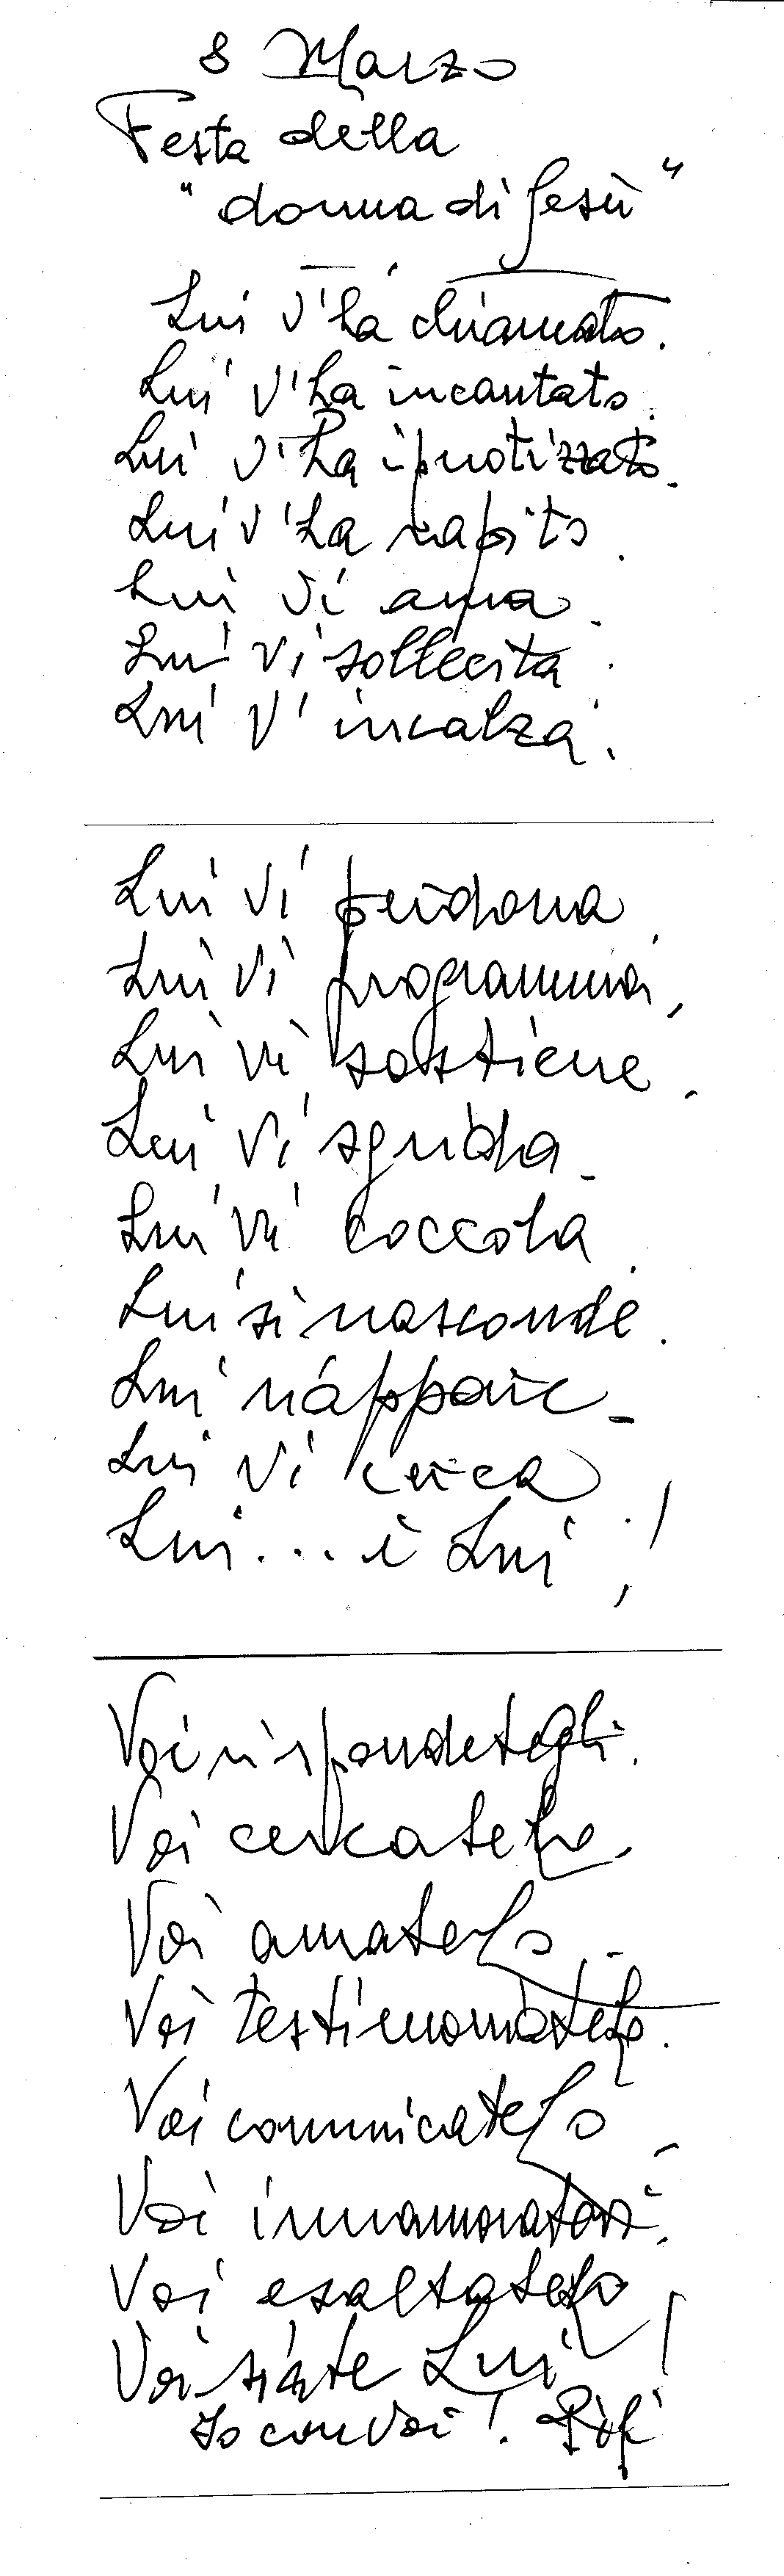 8 Marzo
Festa della
"donna di Gesù"
Lui v'ha chiamato.
Lui v'ha incantato.
Lui v'ha ipnotizzato.
Lui v'ha rapito.
Lui vi ama.
Lui vi sollecita.
Lui v'incalza.
Lui vi perdona.
Lui vi programma.
Lui vi sostiene.
Lui vi sgrida.
Lui vi coccola.
Lui si nasconde.
Lui riappare.
Lui vi cerca
Lui... è Lui!
Voi rispondetegli.
Voi cercatelo.
Voi amatelo.
Voi testimoniatelo.
Voi comunicatelo.
Voi innamoratevi.
Voi esaltatelo
Voi siate Lui!
Io con voi!